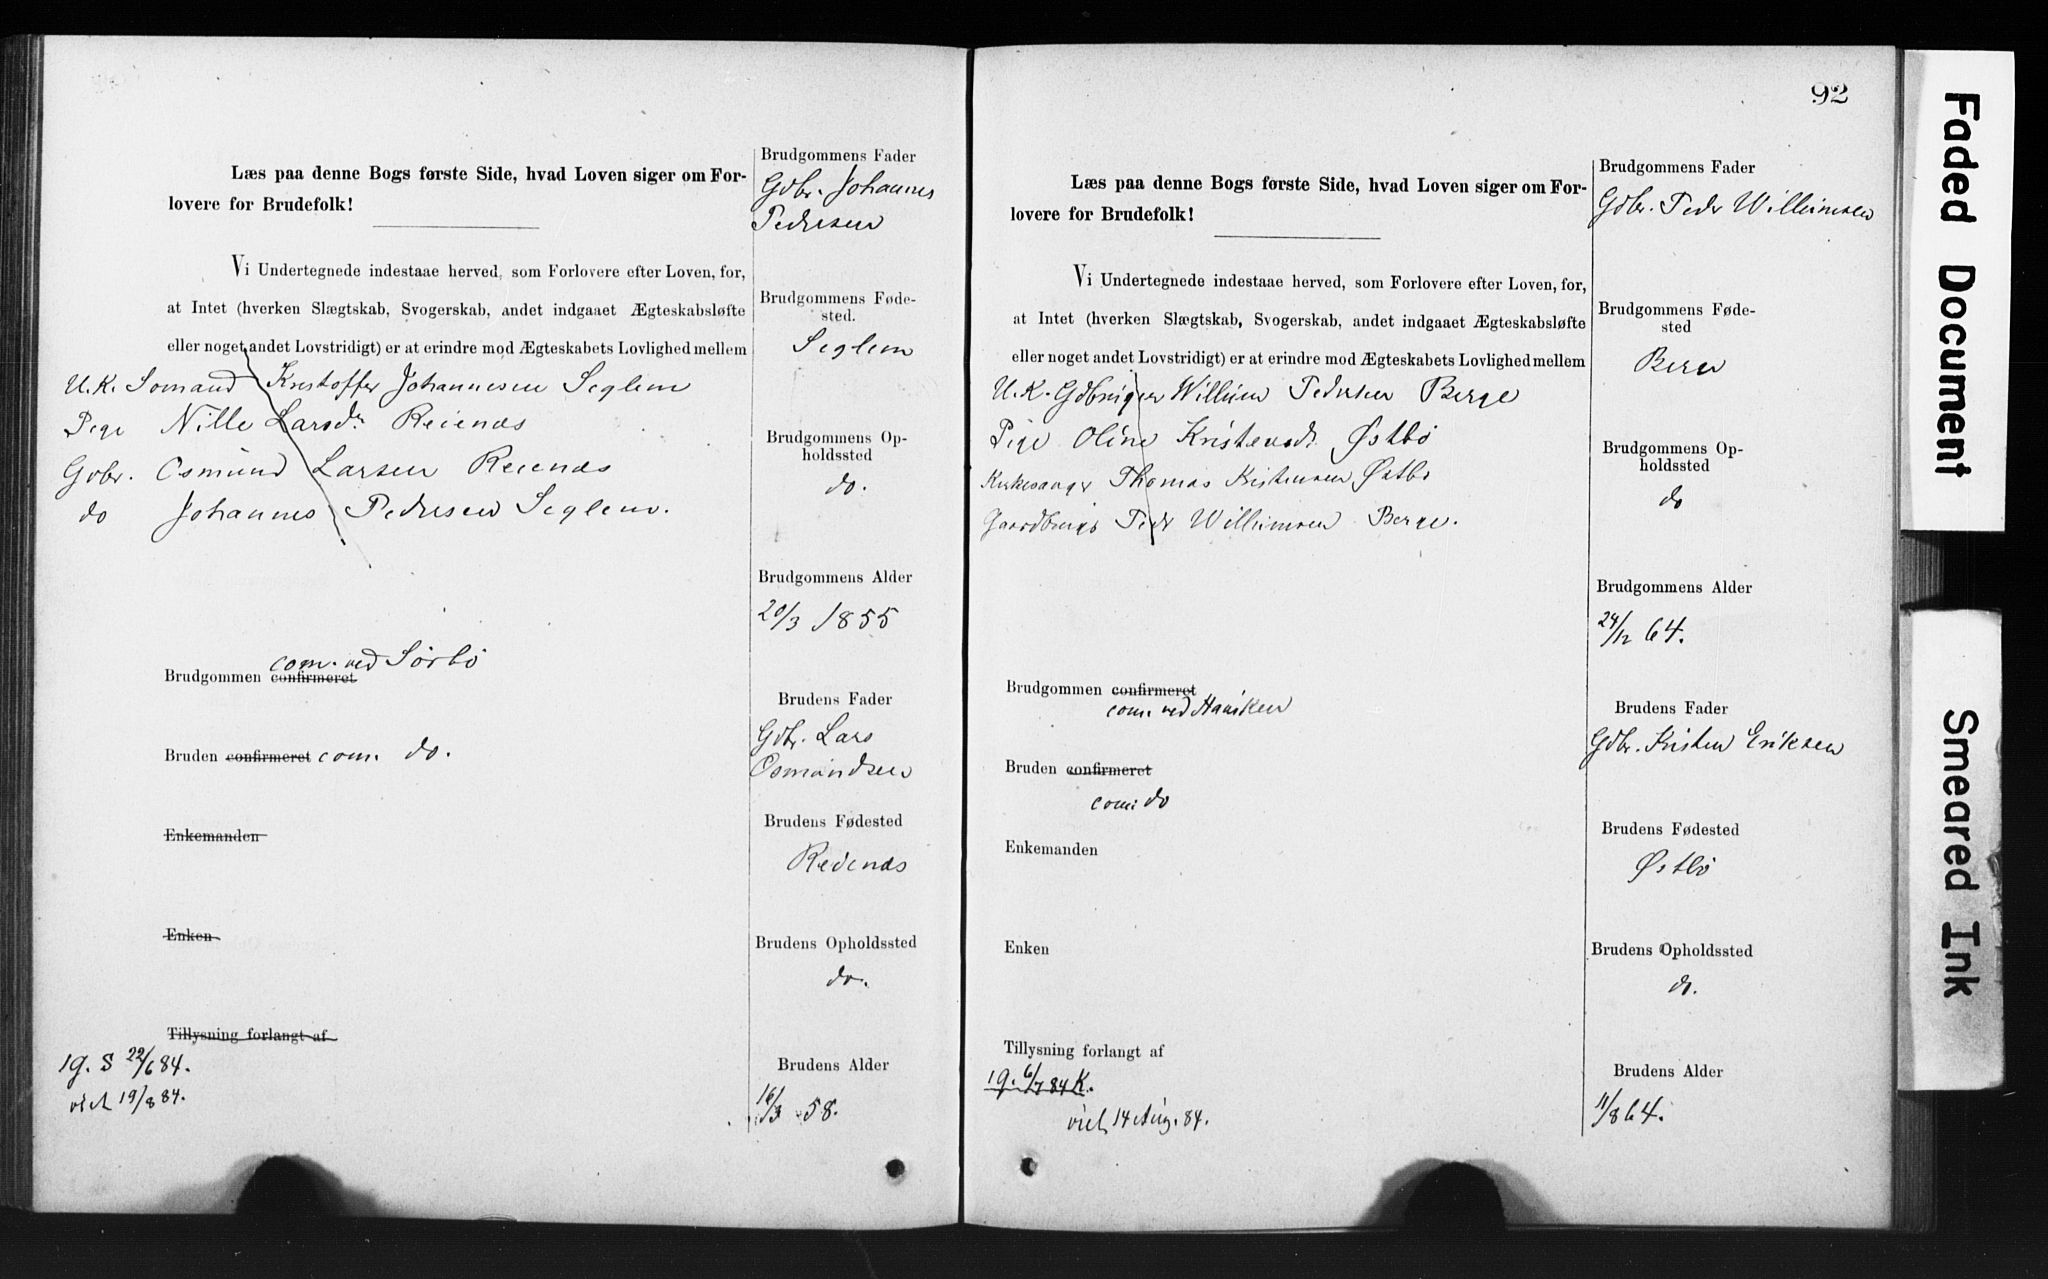 Læs paa denne Bogs første Side, hvad Loven siger om For-
lovere for Brudefolk!
Vi Undertegnede indestaae herved, som Forlovere efter Loven, for,
at Intet (hverken Slægtskab, Svogerskab, andet indgaaet Ægteskabsløfte
eller noget andet Lovstridigt) er at erindre mod Ægteskabets Lovlighed mellem
U.K. Somand Kristoffer Johannesen Seglem
Pige Nille Larsdr Reienæs
Gdbr. Osmund Larsen Reienæs
do Johannes Pedersen Seglem.
com. ved Sörbö
Brudgommen confirmeret
Bruden confirmeret com. do.
Enkemanden
Enken
Tillysning forlangt af
1g. S 22/6 84.
viet 19/8 84.
Brudgommens Fader
Gdbr. Johannes
Pedersen
Brudgommens Føde-
sted.
Seglem
Brudgommens Op-
holdssted
do.
Brudgommens Alder
20/3 1855
Brudens Fader
Gdbr. Lars
Osmundsen
Brudens Fødested
Reienæs
Brudens Opholdssted
do.
Brudens Alder
16/3 58.
92
Læs paa denne Bogs første Side, hvad Loven siger om For-
lovere for Brudefolk!
Vi Undertegnede indestaae herved, som Forlovere efter Loven, for,
at Intet (hverken Slægtskab, Svogerskab, andet indgaaet Ægteskabsløfte
eller noget andet Lovstridigt) er at erindre mod Ægteskabets Lovlighed mellem
U.K. Gdbruger Willum Pedersen Berge
Pige Oline Kristensdr Østbö
Kirkesanger Thomas Kristensen Østbö
Gaardbrugr Peder Willumsen Berge.
Brudgommen confirmeret
com. ved Hausken
Bruden confirmeret
com: do
Enkemanden
Enken
Tillysning forlangt af
1g. 6/7 84 K.
viet 14 Aug. 84.
Brudgommens Fader
Gdbr. Peder Willumsen
Brudgommens Føde-
sted
Berge
Brudgommens Op-
holdssted
do
Brudgommens Alder
24/12 64.
Brudens Fader
Gdbr. Kristen Eriksen
Brudens Fødested
Østbö
Brudens Opholdssted
do.
Brudens Alder
11/8 64.
Faded Document
Smeared Ink